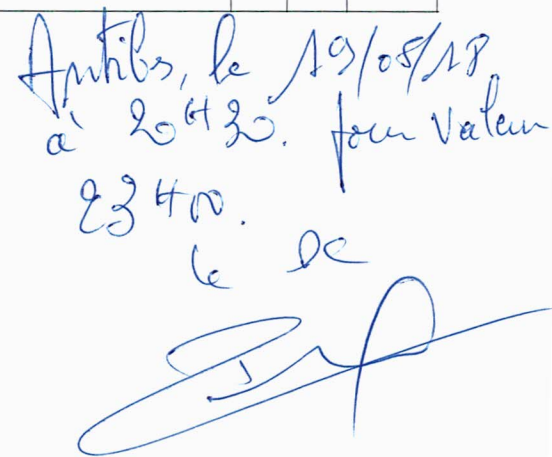 Antibes, le 19/08/18
à 20H30. pour valeur
23H00.
le DC